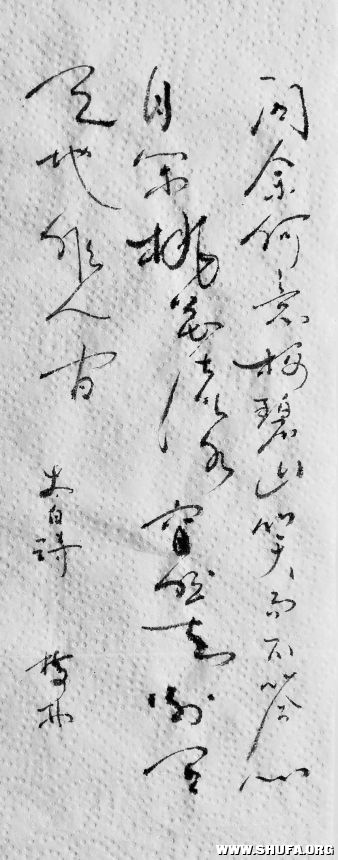 问余何意栖碧山笑而不答心
自闲桃花流水窅然去别有
天地非人间
太白诗
WWW.SHUFA.ORG